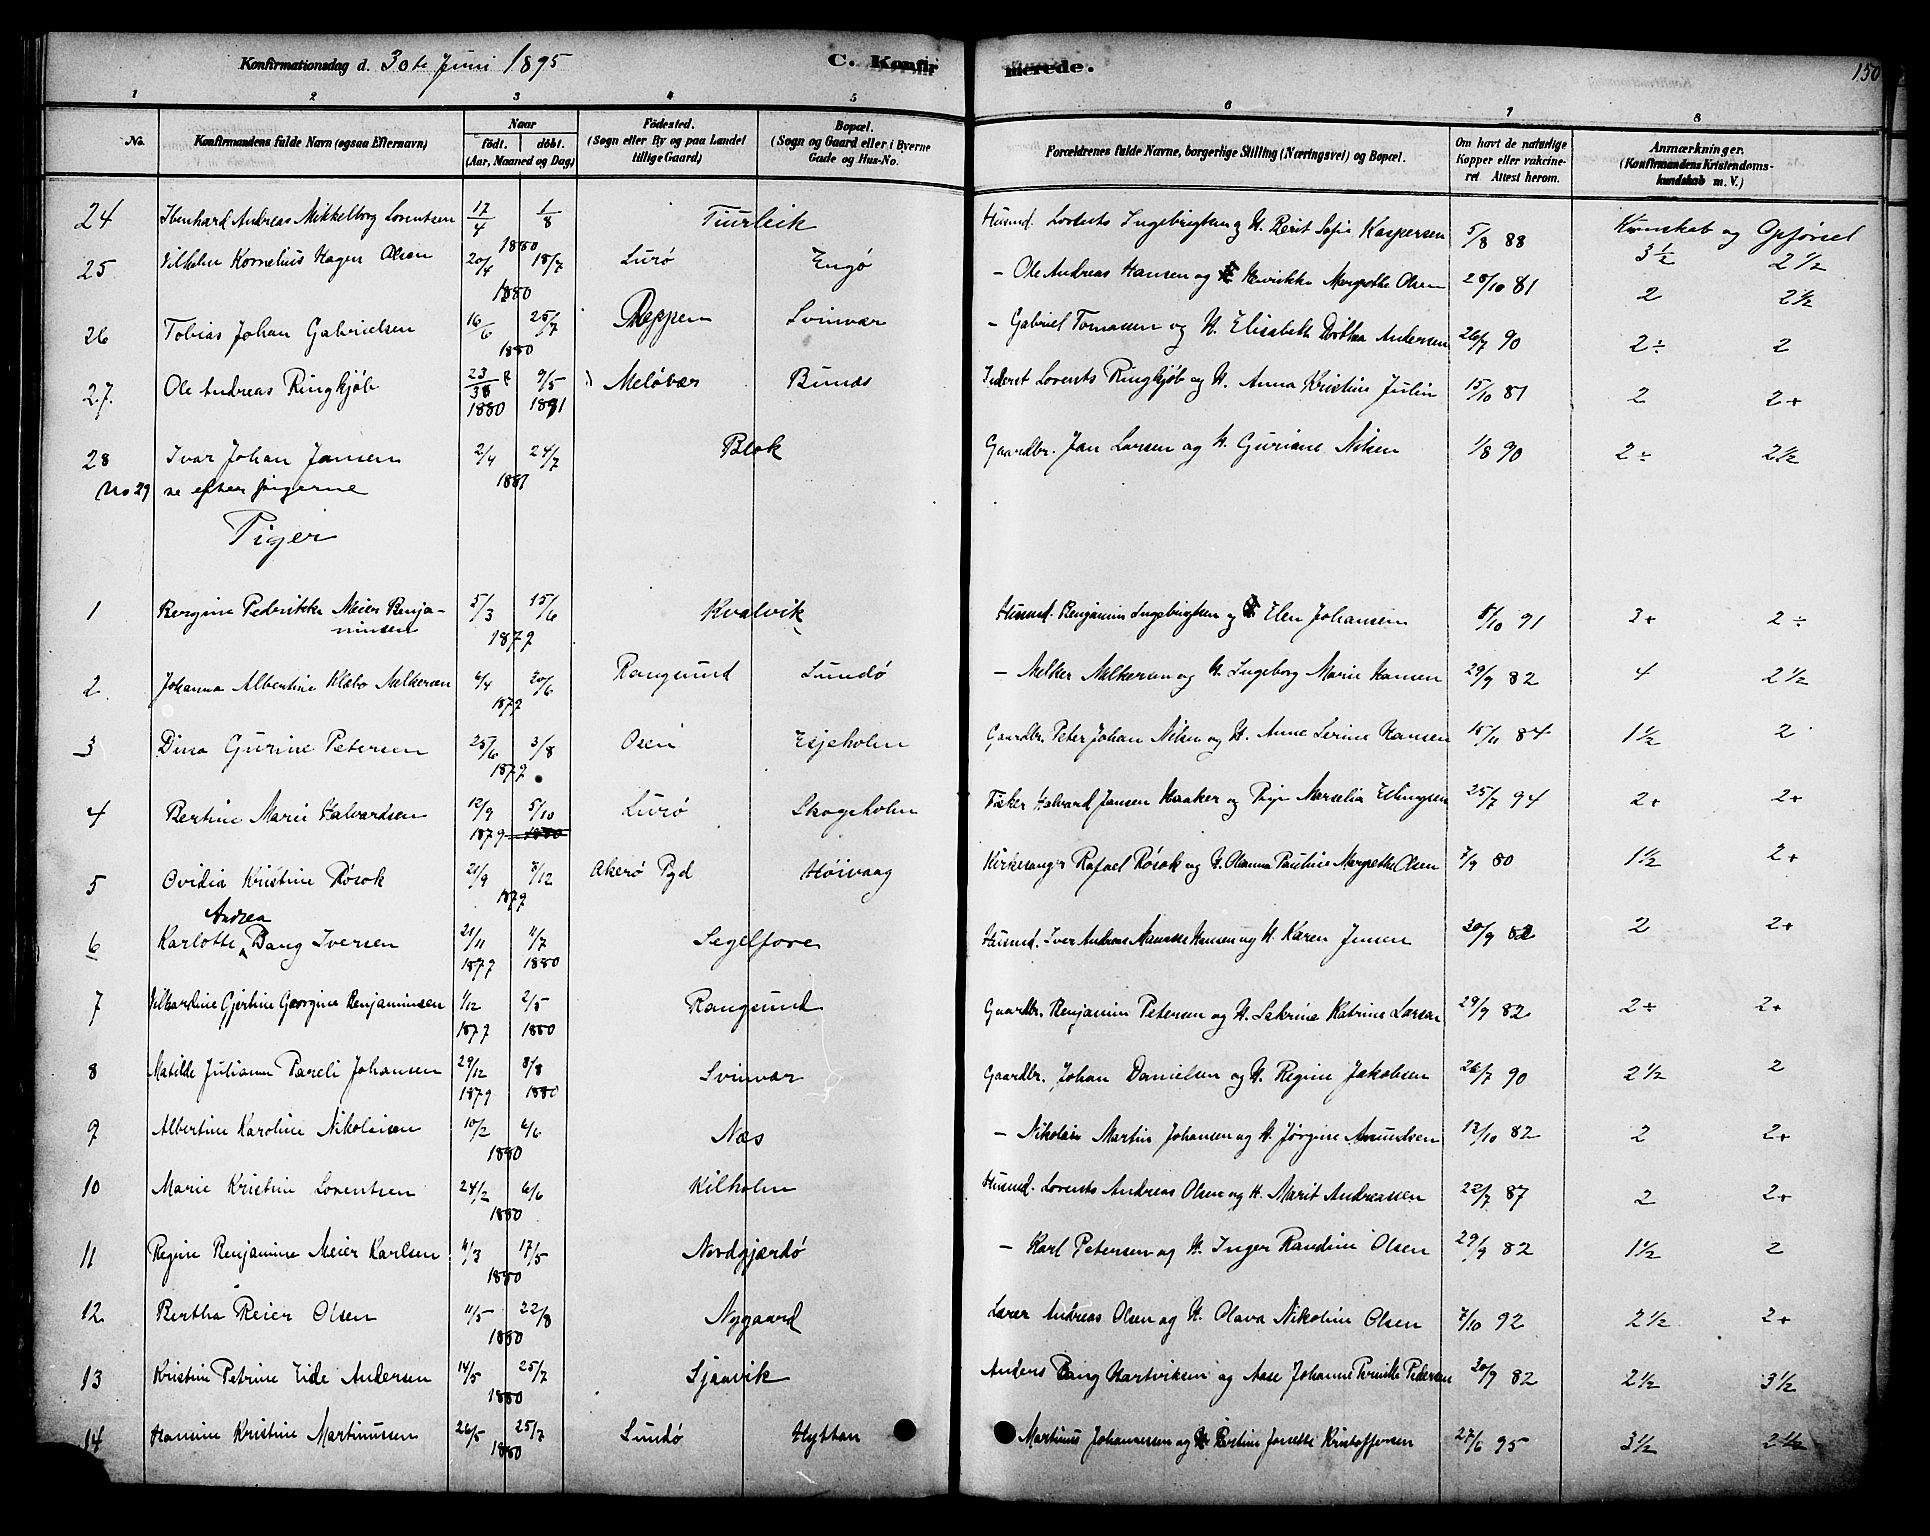 Konfirmationsdag d. 30te Juni 1895 C. Konfirmerede. 150
1 2 3 4 5 6 7 8
No. Konfirmandens fulde Navn (ogsaa Efternavn) Naar født. døbt. (Aar, Maaned og Dag) Fødested. (Sogn eller By og paa Landet tillige Gaard) Bopæl. (Sogn og Gaard eller i Byerne Gade og Hus-No. Forældrenes fulde Navne, borgerlige Stilling (Næringsvei) og Bopæl. Om havt de naturlige Kopper eller vakcineret Attest herom. Anmærkninger. (Konfirmandens Kristendomskundskab m. V.)
Kunskab og Opførsel
24 Ibenhard Andreas Mikkelborg Lorentsen 17/4 1/8 1880 Husmd. Lorents Ingebrigtsen og H. Berit Sofie Kaspersen 5/8 88 3½ 2½
25 Vilhelm Kornelius Hagen Olsen 20/4 18/7 1880 Lurø Engø - Ole Andreas Hansen og H. Henrikke Margrethe Olsen 28/10 81 2 2½
26 Tobias Johan Gabrielsen 16/6 25/7 1880 Reppen Svinvær - Gabriel Tomassen og H. Elisabeth Dorthea Andersen 26/7 90 2÷ 2
27. Ole Andreas Ringkjøb 1880 9/5 1891 Meløvær Bunæs Inderst Lorents Ringkjøb og H. Anna Kristine Julin 15/10 81 2 2+
28 Ivar Johan Jansen 2/4 24/7 1881 Blok Gaardbr. Jan Larsen og H. Guriane Nilsen 1/8 90 2÷ 2½
No 29 se efter pigerne
Piger
1 Bergine Pedrikke Meier Benjaminsen 5/3 15/6 1879 Kvalvik Husmd. Benjamin Ingebrigtsen og H. Elen Johansen 8/10 91 3+ 2÷
2. Johanna Albertine Klæbo Melkersen 6/4 20/6 1879 Rangsund Lundø - Melker Melkersen og H. Ingeborg Marie Hansen 29/9 82 4 2½
3 Dina Gurine Petersen 25/6 3/8 1879 Osen Esjeholm Gaardbr. Peter Johan Nilsen og H. Anne Serine Hansen 15/11 84 1½ 2
4 Bertine Marie Halvardsen 12/9 5/10 1879 1880 Lurø Skogsholm Fisker Halvard Jansen Haaker og Pige Marselia Ellingsen 25/7 94 2+ 2+
5 Ovidia Kristine Røsok 21/9 8/12 1879 Alterø Pgd Høivaag Kirkesanger Rafael Røsok og H. Olanna Pauline Margrethe Olsen 7/9 80 1½ 2+
Andrea
6 Karlotte Bang Iversen 21/11 1879 11/7 1880 Segelfore Husmd. Iver Andreas Manasse Hansen og H. Karen Jensen 20/9 82 2 2+
7 Vilhardine Gjertine Georgine Benjaminsen 1/12 1879 2/5 1880 Rangsund Gaardbr. Benjamin Petersen og H. Sakrine Katrine Larsen 29/9 82 2÷ 2+
8 Matilde Julianne Pareli Johansen 29/12 1879 8/8 1880 Svinvær Gaardbr. Johan Danielsen og H. Regine Jakobsen 26/7 90 2½ 2
9 Albertine Karoline Nikolaisen 10/2 6/6 1880 Næs - Nikolai Martin Johansen og H. Jørgine Amundsen 12/10 82 2 2+
10 Marie Kristine Lorentsen 24/2 6/6 1880 Kilholm Husmd. Lorents Andreas Olsen og H. Marit Andreassen 22/7 87 2 2+
11 Regine Benjamine Meier Karlsen 4/3 17/5 1880 Nordgjærdø - Karl Petersen og H. Inger Randine Olsen 29/9 82 1½ 2
12 Bertha Reier Olsen 11/5 22/8 1880 Nygaard Lærer Andreas Olsen og H. Olava Nikoline Olsen 7/10 92 2½ 2+
13 Kristine Petrine Eide Andersen 14/5 25/7 1880 Sjaavik Anders Bang Hartviksen og Aase Johanne Pernille Pedersen 20/9 82 2½ 3½
14 Hansine Kristine Martinussen 26/5 25/7 1880 Lundø Hyttan Martinus Johannessen og H. Bertine Jonette Kristoffersen 27/6 95 3½ 2½